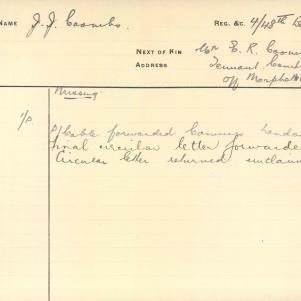 NAME J. J. Coombs. REG. &C. 4/48th B
NEXT OF KIN Mr E. R. Coom
ADDRESS Tennant
off Morphett
Missing.
1/P
P/Cable forwarded Comings Londo
Final circular letter forwarde
Circular letter returned unclaim